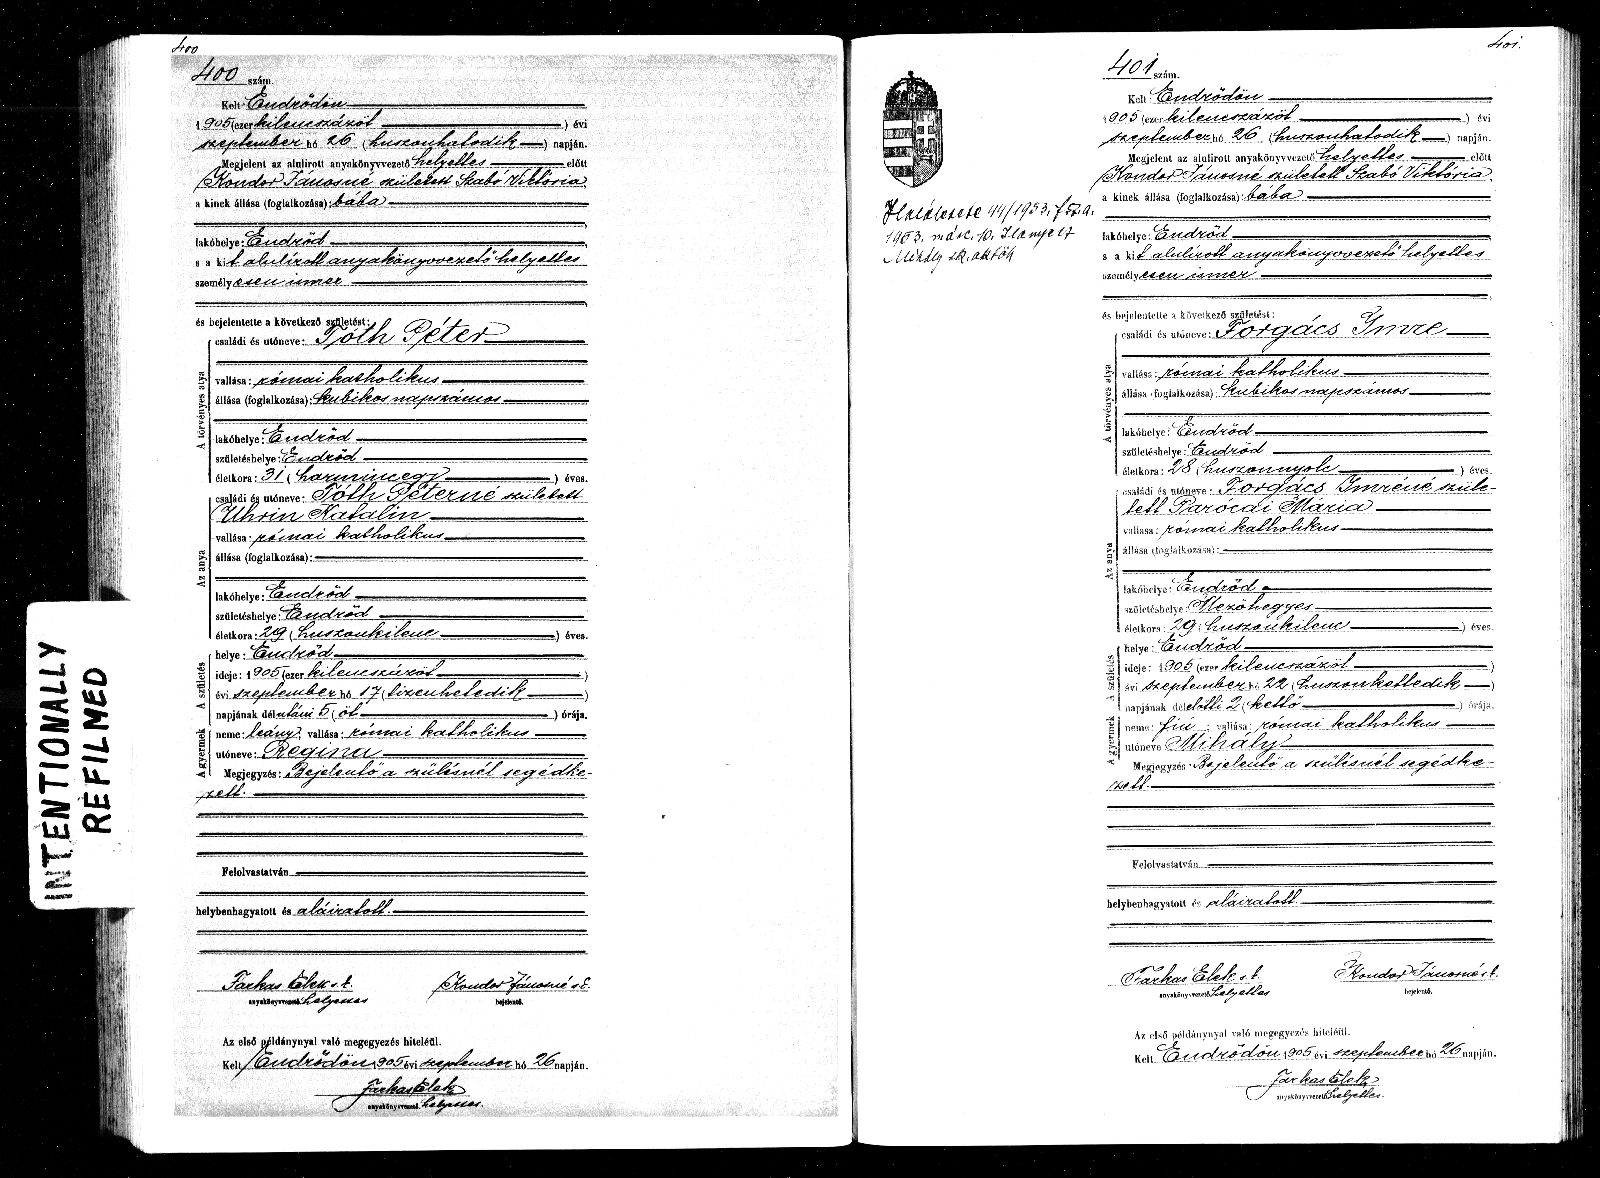 400
400 szám.
Kelt Endrődön
1905 (ezer kilenczszázöt) évi
szeptember hó 26 (huszonhatodik) napján.
Megjelent az alulirott anyakönyvvezető helyettes előtt
Kondor Jánosné született Szabó Viktória
a kinek állása (foglalkozása): bába
lakóhelye: Endrőd
s a kit alulírott anyakönyvvezető helyettes
személyesen ismer
és bejelentette a következő születést:
A törvényes atya
családi és utóneve: Tóth Péter
vallása: római katholikus
állása (foglalkozása): kubikos napszámos
lakóhelye: Endrőd
születéshelye: Endrőd
életkora: 31 (harminczegy) éves.
Az anya
családi és utóneve: Tóth Péterné született
Uhrin Katalin
vallása: római katholikus
állása (foglalkozása):
lakóhelye: Endrőd
születéshelye: Endrőd
életkora: 29 (huszonkilenc) éves.
A születés
helye: Endrőd
ideje: 1905 (ezer kilenczszázöt
évi szeptember hó 17 (tizenhetedik)
napjának délutáni 5 (öt) órája.
A gyermek
neme: leány; vallása: római katholikus
utóneve: Regina
Megjegyzés: Bejelentő a szülésnél segédke-
zett.
Felolvastatván
helybenhagyatott és aláiratott.
Farkas Elek s.k. Kondor Jánosné s.k.
anyakönyvvezető helyettes bejelentő.
Az első példánynyal való megegyezés hiteléül.
Kelt Endrődön 1905 évi szeptember hó 26 napján.
Farkas Elek
anyakönyvvezető helyettes.
INTENTIONALLY
REFILMED
401.
401 szám.
Kelt Endrődön
1905 (ezer kilenczszázöt) évi
szeptember hó 26 (huszonhatodik) napján.
Megjelent az alulirott anyakönyvvezető helyettes előtt
Kondor Jánosné született Szabó Viktória
a kinek állása (foglalkozása): bába
lakóhelye: Endrőd
s a kit alulírott anyakönyvvezető helyettes
személyesen ismer
44/1953.
1953. márc. 10.
és bejelentette a következő születést:
A törvényes atya
családi és utóneve: Forgács Imre
vallása: római katholikus
állása (foglalkozása): kubikos napszámos
lakóhelye: Endrőd
születéshelye: Endrőd
életkora: 28 (huszonnyolc) éves.
Az anya
családi és utóneve: Forgács Imréné szüle-
tett Paróczi Mária
vallása: római katholikus
állása (foglalkozása):
lakóhelye: Endrőd
születéshelye: Mezőhegyes
életkora: 29 (huszonkilenc) éves.
A születés
helye: Endrőd
ideje: 1905 (ezer kilenczszázöt)
évi szeptember hó 22 (huszonkettedik)
napjának délelőtti 2 (kettő) órája.
A gyermek
neme: fiú; vallása: római katholikus
utóneve Mihály
Megjegyzés: Bejelentő a szülésnél segédke-
zett.
Felolvastatván
helybenhagyatott és aláiratott.
Farkas Elek s.k. Kondor Jánosné s.k.
anyakönyvvezető helyettes bejelentő.
Az első példánynyal való megegyezés hiteléül.
Kelt Endrődön 1905 évi szeptember hó 26 napján.
Farkas Elek
anyakönyvvezető helyettes.